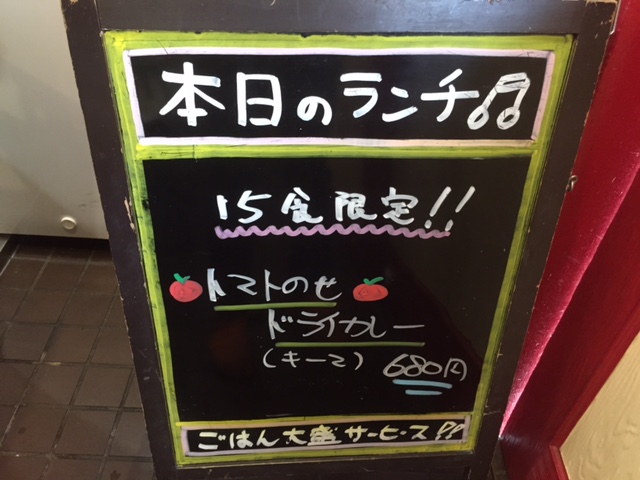 本日のランチ♫
15食限定!!
トマトのせ
ドライカレー
(キーマ) 680円
ごはん大盛サービス!!